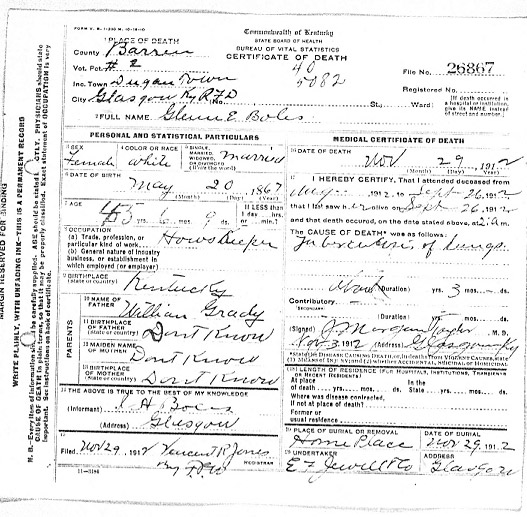 FORM V. S. 1
Commonwealth of Kentucky
STATE BOARD OF HEALTH
BUREAU OF VITAL STATISTICS
CERTIFICATE OF DEATH
1 PLACE OF DEATH
County Barren
Vot. Pct. # 2
Inc. Town Dugan Town
City Glasgow Ky RFD No. St.; Ward
40
5082
File No. 26867
Registered No.
[If death occurred in a hospital or institution, give its NAME instead of street and number.]
2 FULL NAME Glenn E Boles
PERSONAL AND STATISTICAL PARTICULARS
3 SEX Female
4 COLOR OR RACE White
5 SINGLE, MARRIED, WIDOWED, OR DIVORCED (Write the word) Married
6 DATE OF BIRTH
May 20, 1867
(Month) (Day) (Year)
7 AGE
45 yrs. 6 mos. 9 ds.
If LESS than 1 day, hrs. or min.?
8 OCCUPATION
(a) Trade, profession, or particular kind of work House Keeper
(b) General nature of industry business, or establishment in which employed (or employer)
9 BIRTHPLACE (State or country) Kentucky
PARENTS
10 NAME OF FATHER William Grady
11 BIRTHPLACE OF FATHER (State or country) Dont Know
12 MAIDEN NAME OF MOTHER Dont Know
13 BIRTHPLACE OF MOTHER (State or country) Dont Know
14 THE ABOVE IS TRUE TO THE BEST OF MY KNOWLEDGE
(Informant) H. Boles
(Address) Glasgow
15 Filed Nov 29, 1912 Vincent R Jones
REGISTRAR
11-3184
MEDICAL CERTIFICATE OF DEATH
16 DATE OF DEATH
Nov 29, 1912
(Month) (Day) (Year)
17 I HEREBY CERTIFY, That I attended deceased from
Aug, 1912, to Sept 26, 1912
that I last saw her alive on Sept 26, 1912
and that death occurred, on the date stated above, at 2 a.m.
The CAUSE OF DEATH* was as follows:
Tuberculosis of Lungs
(Duration) yrs. 3 mos. ds.
Contributory
(SECONDARY)
(Duration) yrs. mos. ds.
(Signed) J Morgan Taylor M. D.
Nov 3, 1912 (Address) Glasgow Ky
*State the DISEASE CAUSING DEATH, or, in deaths from VIOLENT CAUSES, state (1) MEANS OF INJURY; and (2) whether ACCIDENTAL, SUICIDAL or HOMICIDAL
18 LENGTH OF RESIDENCE (FOR HOSPITALS, INSTITUTIONS, TRANSIENTS OR RECENT RESIDENTS)
At place of death yrs. mos. ds. In the State yrs. mos. ds.
Where was disease contracted, if not at place of death?
Former or usual residence
19 PLACE OF BURIAL OR REMOVAL Home Place
DATE OF BURIAL Nov 29, 1912
20 UNDERTAKER E F Jewell & Co
ADDRESS Glasgow
MARGIN RESERVED FOR BINDING
WRITE PLAINLY, WITH UNFADING INK—THIS IS A PERMANENT RECORD
N. B.—Every item of information should be carefully supplied. AGE should be stated EXACTLY. PHYSICIANS should state CAUSE OF DEATH in plain terms, so that it may be properly classified. Exact statement of OCCUPATION is very important. See instructions on back of certificate.